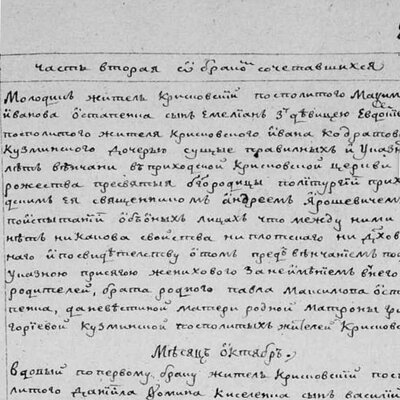 часть вторая ѿ брачно сочетавшихся
Молодикъ житель Крисковскій посполитого Максим
Іванова Остапенка сынъ Емелианъ з дѣвицею Евдоті
посполитого жителя Крисковского Івана Кодратова
Кузминского дочерью сущие правилныхъ и указны
лѣтъ вѣнчани въ приходской Крисковской церкви
рожества пресвятыя Богородицы по літургій при
скимъ ея священникомъ Андреемъ Ярошевичемъ
по испытаній обоихъ лицахъ что между ними
нѣтъ никакова свойства ни плотскаго ни дꙋхов
наго и по свидѣтелству о томъ предъ вѣнчаніемъ под
указною присягою женихового за неимѣніемъ в него
родителей, брата родного Павла Максимова Оста
пенка, а невѣстиной матери родной Матроны Гри
горіевой Кузминской посполитыхъ жителей Крисковс
Мѣсяцъ Октябрь.
вдовый по первому браку житель Крисковскій посп
литого Даніила Фомина Киселенка сынъ Василій